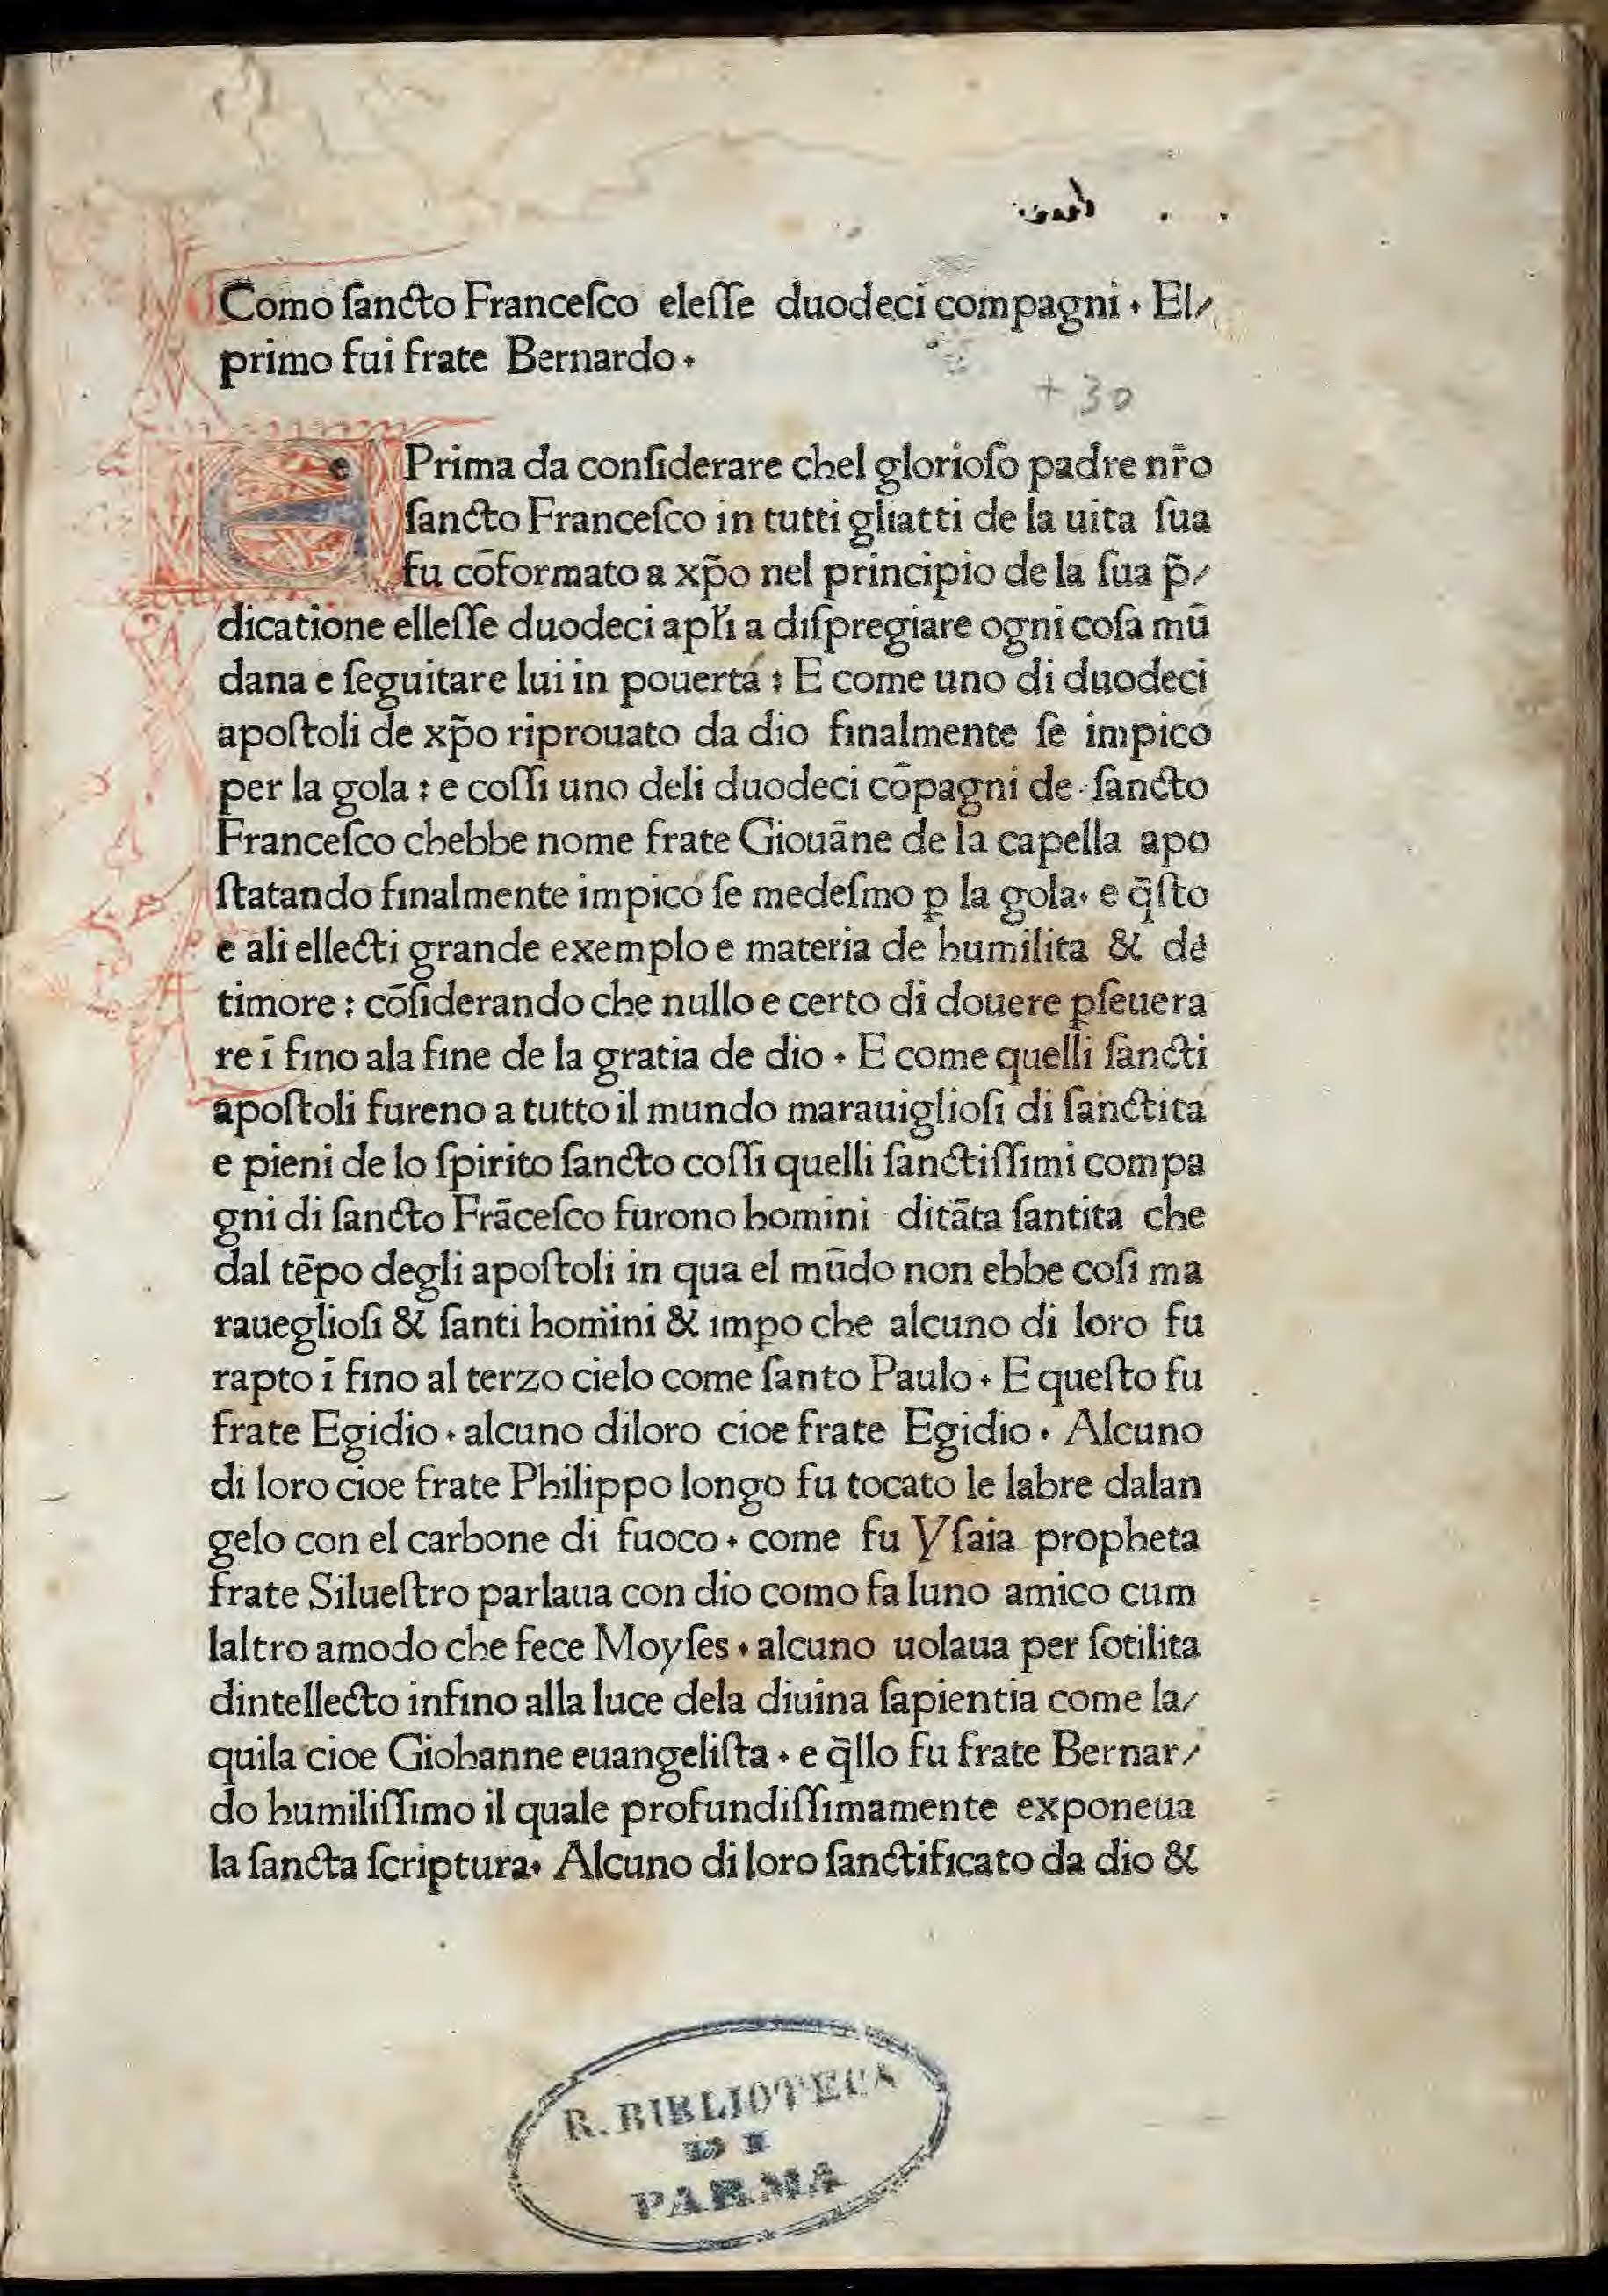 Como ſancto Franceſco eleſſe duodeci compagni · El/
primo fui frate Bernardo ·
+ 30
e Prima da conſiderare chel glorioſo padre nr̄o
ſancto Franceſco in tutti gliatti de la uita ſua
fu cōformato a xp̄o nel principio de la ſua p̄/
dicatione elleſſe duodeci apłi a diſpregiare ogni coſa mū
dana e ſeguitare lui in pouertá : E come uno di duodeci
apoſtoli de xp̄o riprouato da dio finalmente ſe impicó
per la gola : e coſſi uno deli duodeci cōpagni de ſancto
Franceſco chebbe nome frate Giouāne de la capella apo
ſtatando finalmente impicó ſe medeſmo ꝑ la gola · e q̄ſto
e ali ellecti grande exemplo e materia de humilita & de
timore : cōſiderando che nullo e certo di douere ꝑſeuera
re ī fino ala fine de la gratia de dio · E come quelli ſancti
apoſtoli fureno a tutto il mundo marauiglioſi di ſanctita
e pieni de lo ſpirito ſancto coſſi quelli ſanctiſſimi compa
gni di ſancto Frāceſco furono homini ditāta ſantitá che
dal tēpo degli apoſtoli in qua el mūdo non ebbe coſi ma
rauegliofi & ſanti homini & impo che alcuno di loro fu
rapto ī fino al terzo cielo come ſanto Paulo · E queſto fu
frate Egidio · alcuno diloro cioe frate Egidio · Alcuno
di loro cioe frate Philippo longo fu tocato le labre dalan
gelo con el carbone di fuoco · come fu Yſaia propheta
frate Silueſtro parlaua con dio como fa luno amico cum
laltro amodo che fece Moyſes · alcuno uolaua per ſotilita
dintellecto infino alla luce dela diuina ſapientia come la/
quila cioe Giohanne euangeliſta · e q̄llo fu frate Bernar/
do humiliſſimo il quale profundiſſimamente exponeua
la ſancta ſcriptura · Alcuno di loro ſanctificato da dio &
R. BIBLIOTECA
DI
PARMA